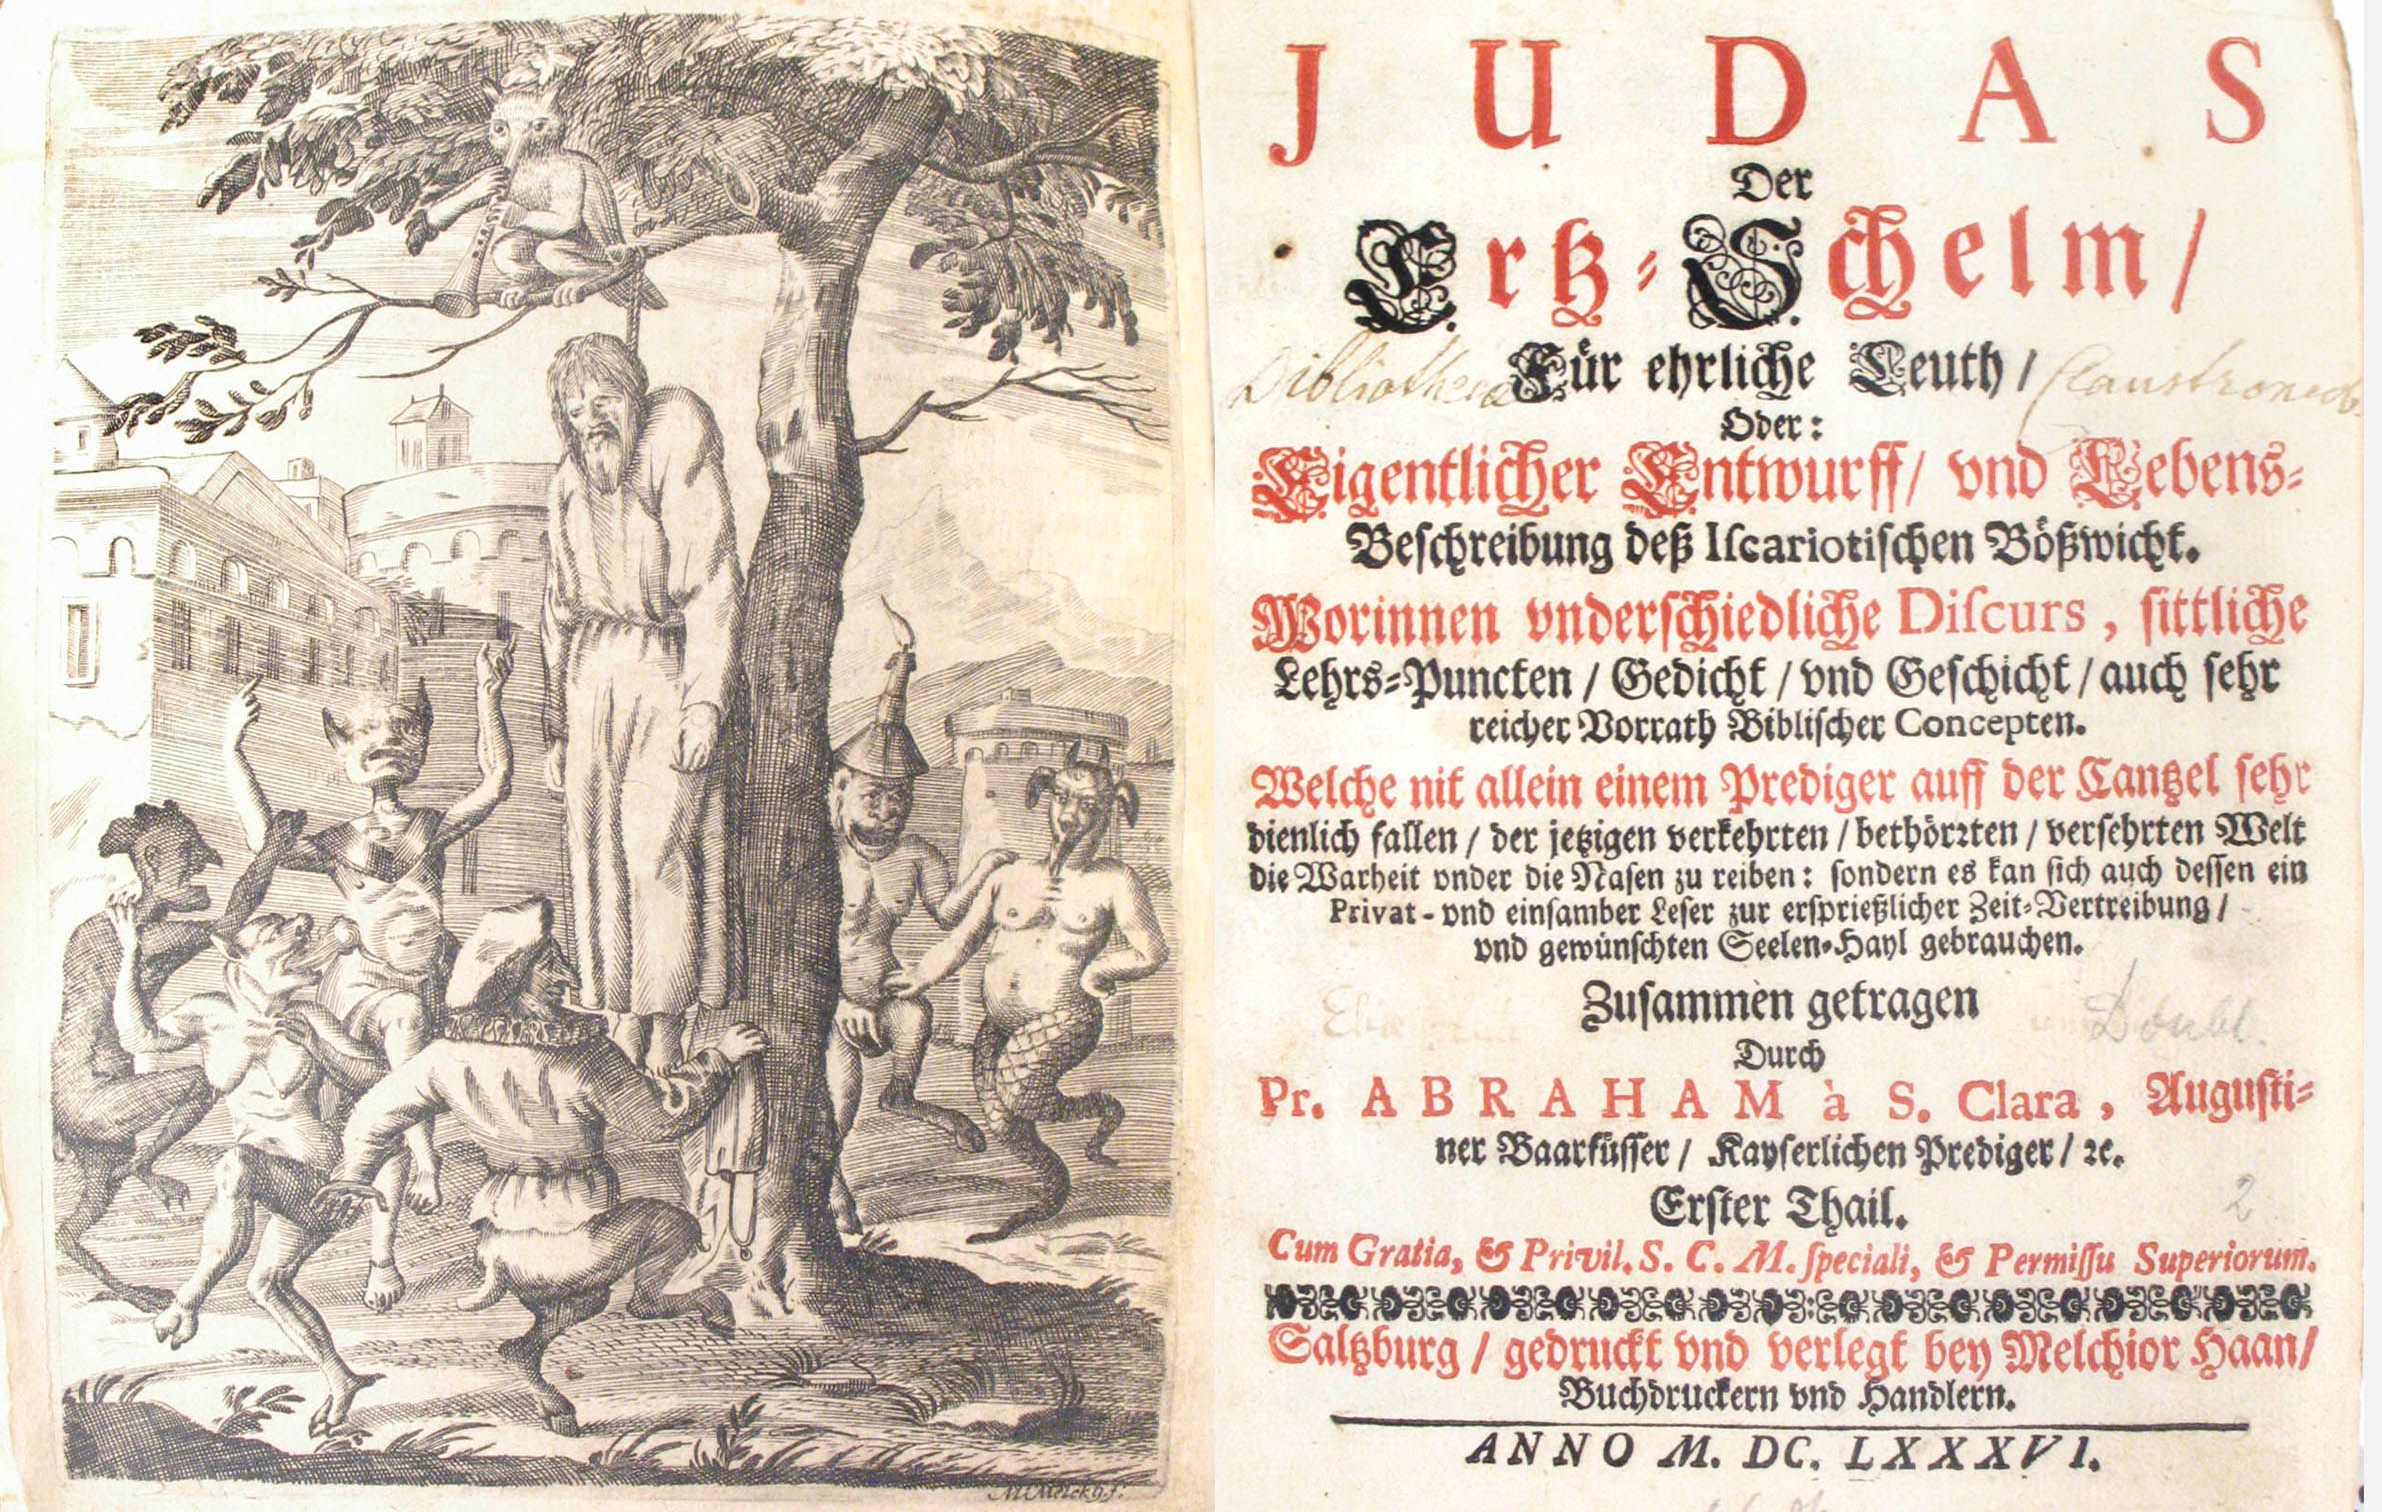 JUDAS
Der
Ertz-Schelm/
Für ehrliche Leuth/
Bibliotheca
Oder:
Eigentlicher Entwurff/ vnd Lebens-
Beschreibung deß Iscariotischen Bößwicht.
Worinnen vnderschiedliche Discurs, sittliche
Lehrs-Puncten / Gedicht / vnd Geschicht / auch sehr
reicher Vorrath Biblischer Concepten.
Welche nit allein einem Prediger auff der Cantzel sehr
dienlich fallen / der jetzigen verkehrten / bethörrten / versehrten Welt
die Warheit vnder die Nasen zu reiben: sondern es kan sich auch dessen ein
Privat- vnd einsamber Leser zur ersprießlicher Zeit-Vertreibung /
vnd gewünschten Seelen-Hayl gebrauchen.
Zusammen getragen
Durch
Pr. ABRAHAM à S. Clara, Augusti-
ner Baarfüsser / Kayserlichen Prediger / ꝛc.
Erster Thail.
2
Cum Gratia, & Privil. S. C. M. speciali, & Permissu Superiorum.
Saltzburg / gedruckt vnd verlegt bey Melchior Haan /
Buchdruckern vnd Handlern.
ANNO M. DC. LXXXVI.